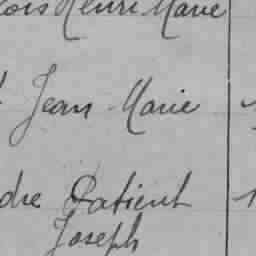 ois Henri Marie
Jean Marie
dre Patient
Joseph